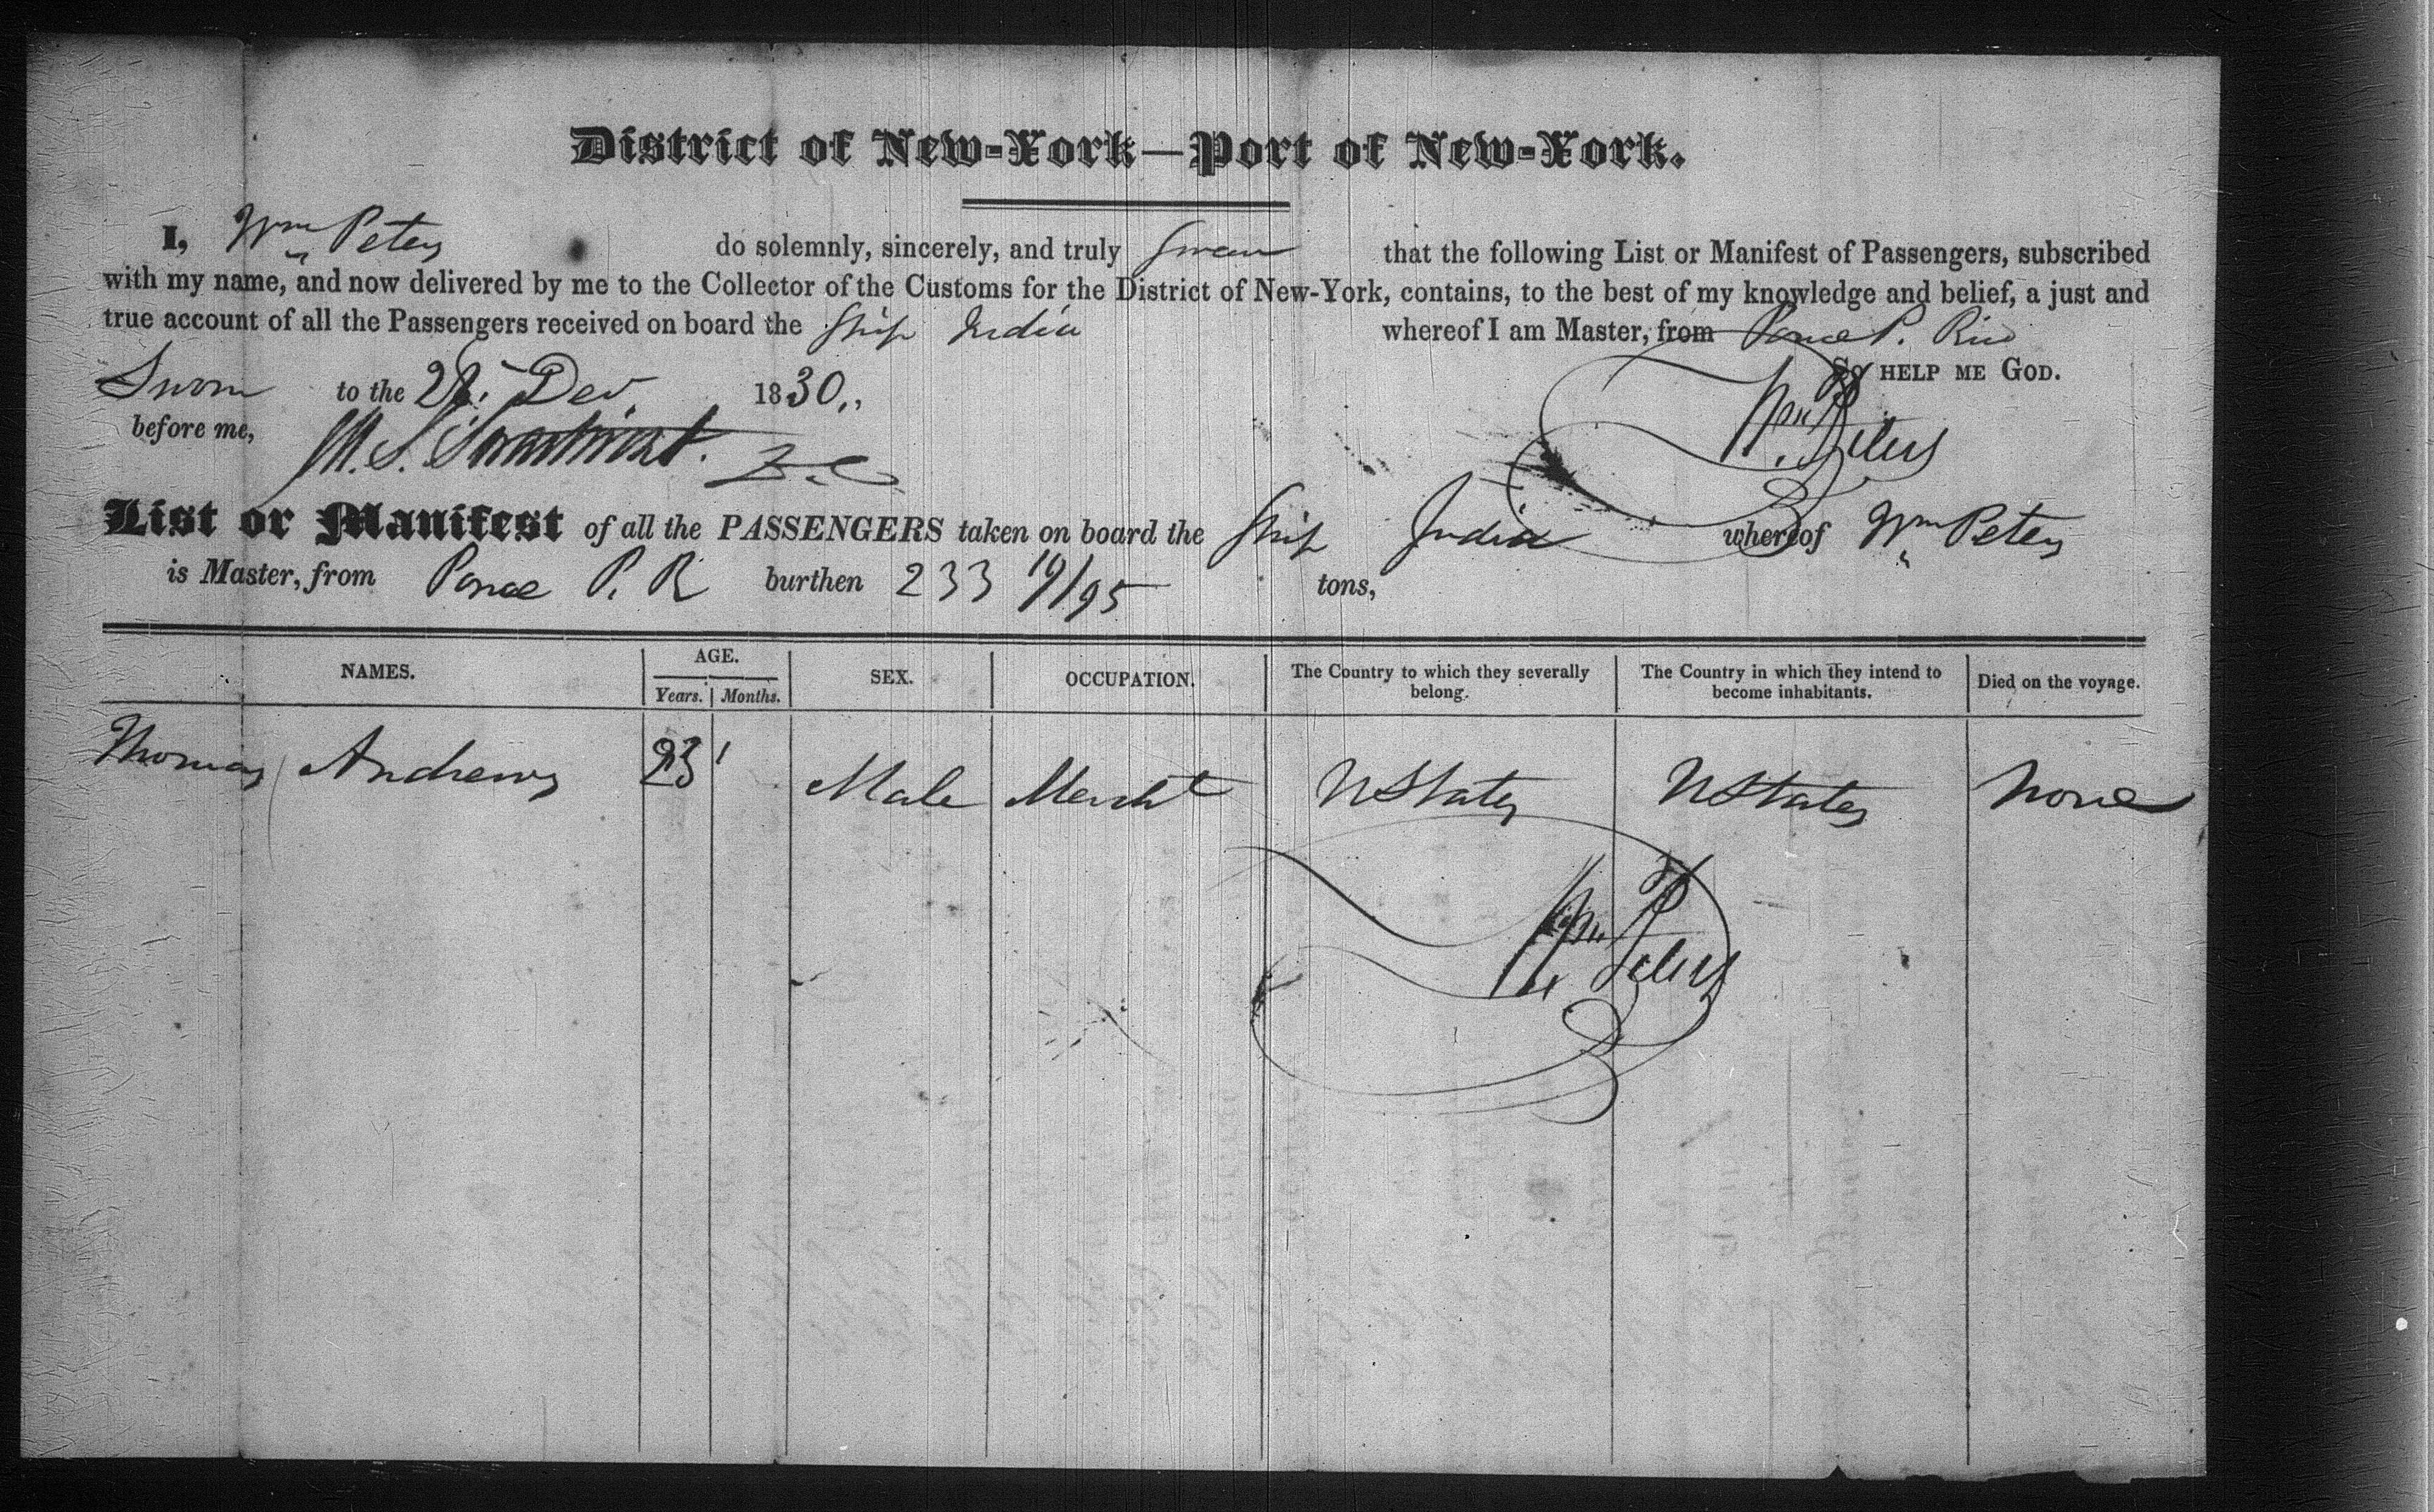 District of New-York—Port of New-York.
I, Wm Peters do solemnly, sincerely, and truly Swear that the following List or Manifest of Passengers, subscribed
with my name, and now delivered by me to the Collector of the Customs for the District of New-York, contains, to the best of my knowledge and belief, a just and
true account of all the Passengers received on board the Ship India whereof I am Master, from Ponce P. Rico
So HELP ME GOD.
Sworn to the Dec 1830
before me, Wm Peters
M. S. Swartwout.
List or Manifest of all the PASSENGERS taken on board the Ship India whereof Wm Peters
is Master, from Ponce P. R burthen 233 19/95 tons,
NAMES. AGE. SEX. OCCUPATION. The Country to which they severally belong. The Country in which they intend to become inhabitants. Died on the voyage.
Years. Months.
Thomas Andrews 23 Male Mercht UStates UStates None
Wm Peters